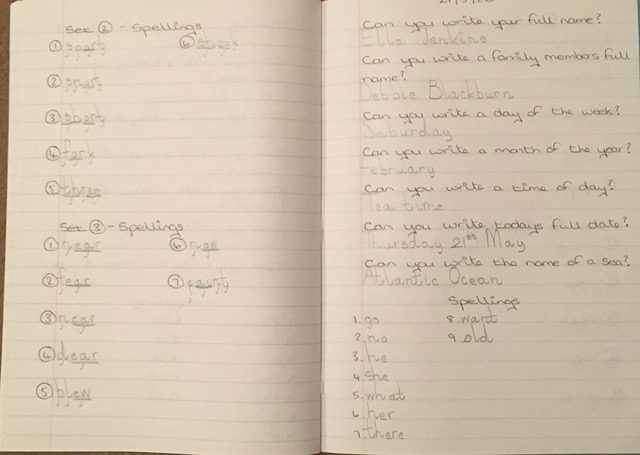 Set ② - Spellings
① sport
②
③ short
④ fork
⑤ three
⑥
Set ③ - Spellings
① near
② fear
③ near
④ dear
⑤ blew
⑥ new
⑦
21/5/20
Can you write your full name?
Ella Jenkins
Can you write a family members full
name?
Debbie Blackburn
Can you write a day of the week?
Saturday
Can you write a month of the year?
February
Can you write a time of day?
Tea time
Can you write todays full date?
Thursday 21st May
Can you write the name of a sea?
Atlantic Ocean
Spellings
1. go
2. no
3. he
4. she
5. what
6. her
7. there
8. want
9. old